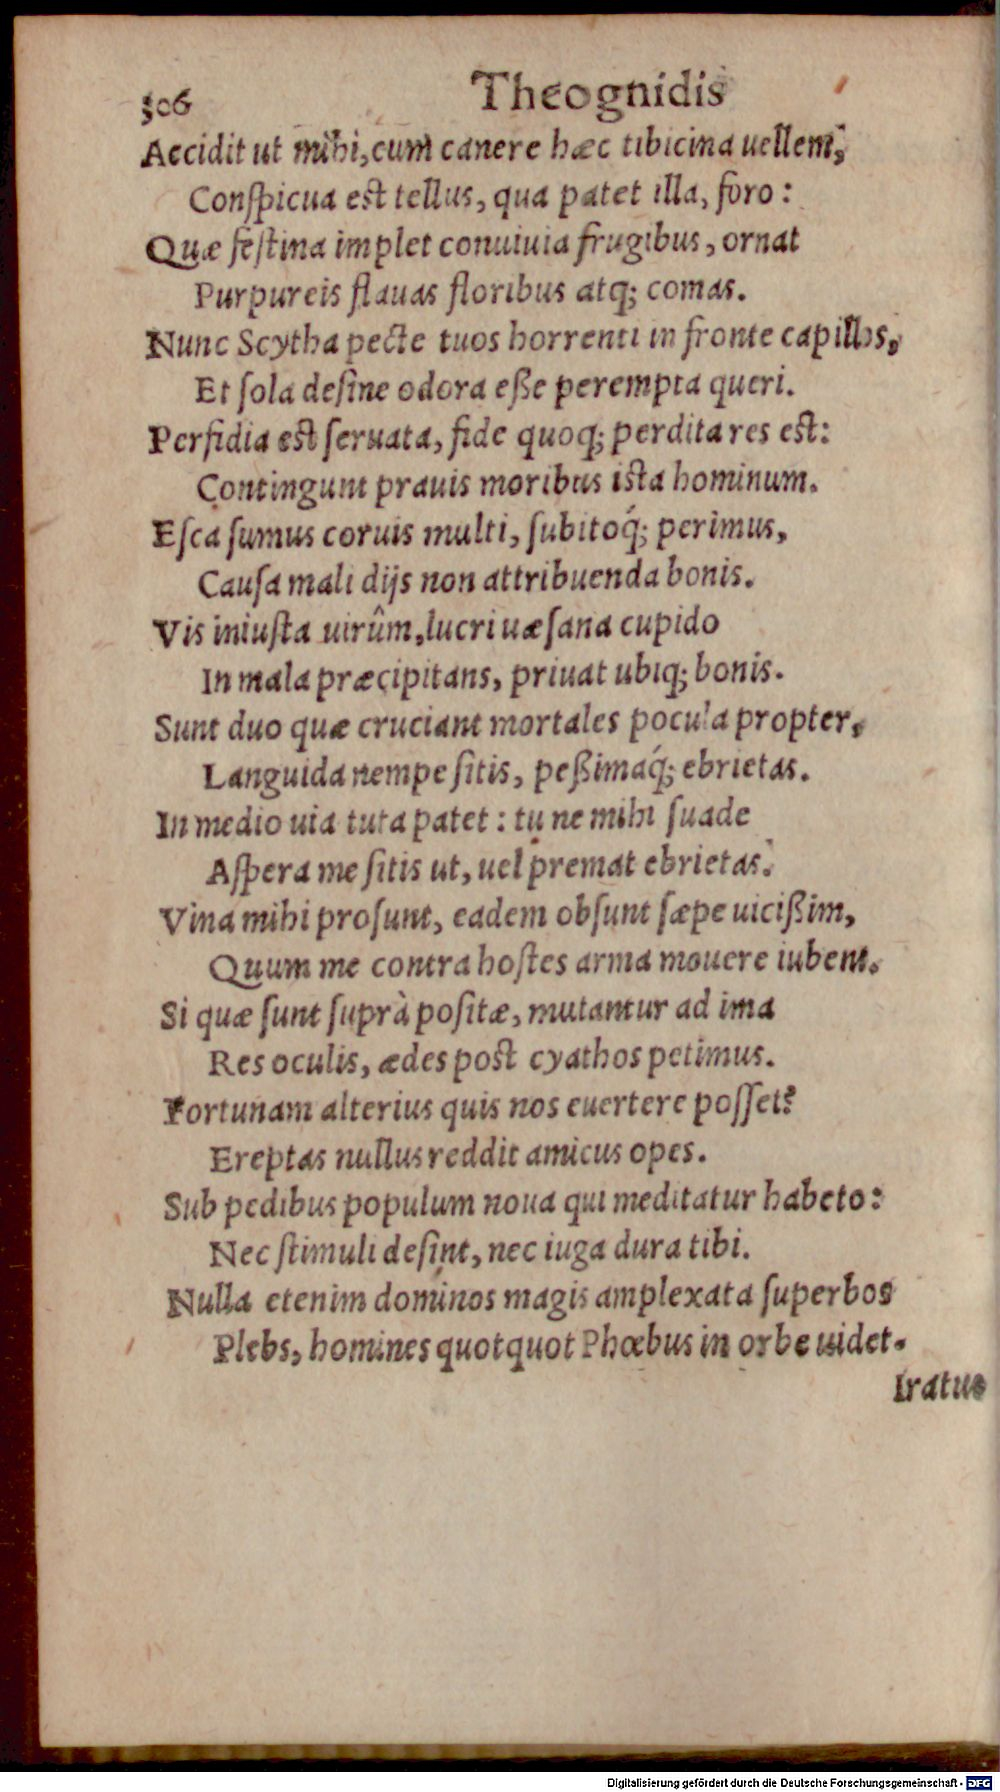 306
Theognidis
Accidit ut mihi, cum canere hæc tibicina uellem,
Conſpicua est tellus, qua patet illa, foro:
Quæ feſtina implet conuiuia frugibus, ornat
Purpureis flauas floribus atq; comas.
Nunc Scytha pecte tuos horrenti in fronte capillos,
Et ſola deſine odora eße perempta queri.
Perfidia est ſeruata, fide quoq; perdita res est:
Contingunt prauis moribus ista hominum.
Eſca ſumus coruis multi, ſubitoq́; perimus,
Cauſa mali dijs non attribuenda bonis.
Vis iniuſta uirûm, lucri uæſana cupido
In mala præcipitans, priuat ubiq; bonis.
Sunt duo quæ cruciant mortales pocula propter,
Languida nempe ſitis, peßimaq́; ebrietas.
In medio uia tuta patet: tu ne mihi ſuade
Aſpera me ſitis ut, uel premat ebrietas.
Vina mihi proſunt, eadem obſunt ſæpe uicißim,
Quum me contra hoſtes arma mouere iubent.
Si quæ ſunt ſuprà poſitæ, mutantur ad ima
Res oculis, ædes post cyathos petimus.
Fortunam alterius quis nos euertere poſſet?
Ereptas nullus reddit amicus opes.
Sub pedibus populum noua qui meditatur habeto:
Nec ſtimuli deſint, nec iuga dura tibi.
Nulla etenim dominos magis amplexata ſuperbos
Plebs, homines quotquot Phœbus in orbe uidet.
Iratus
Digitalisierung gefördert durch die Deutsche Forschungsgemeinschaft - DFG